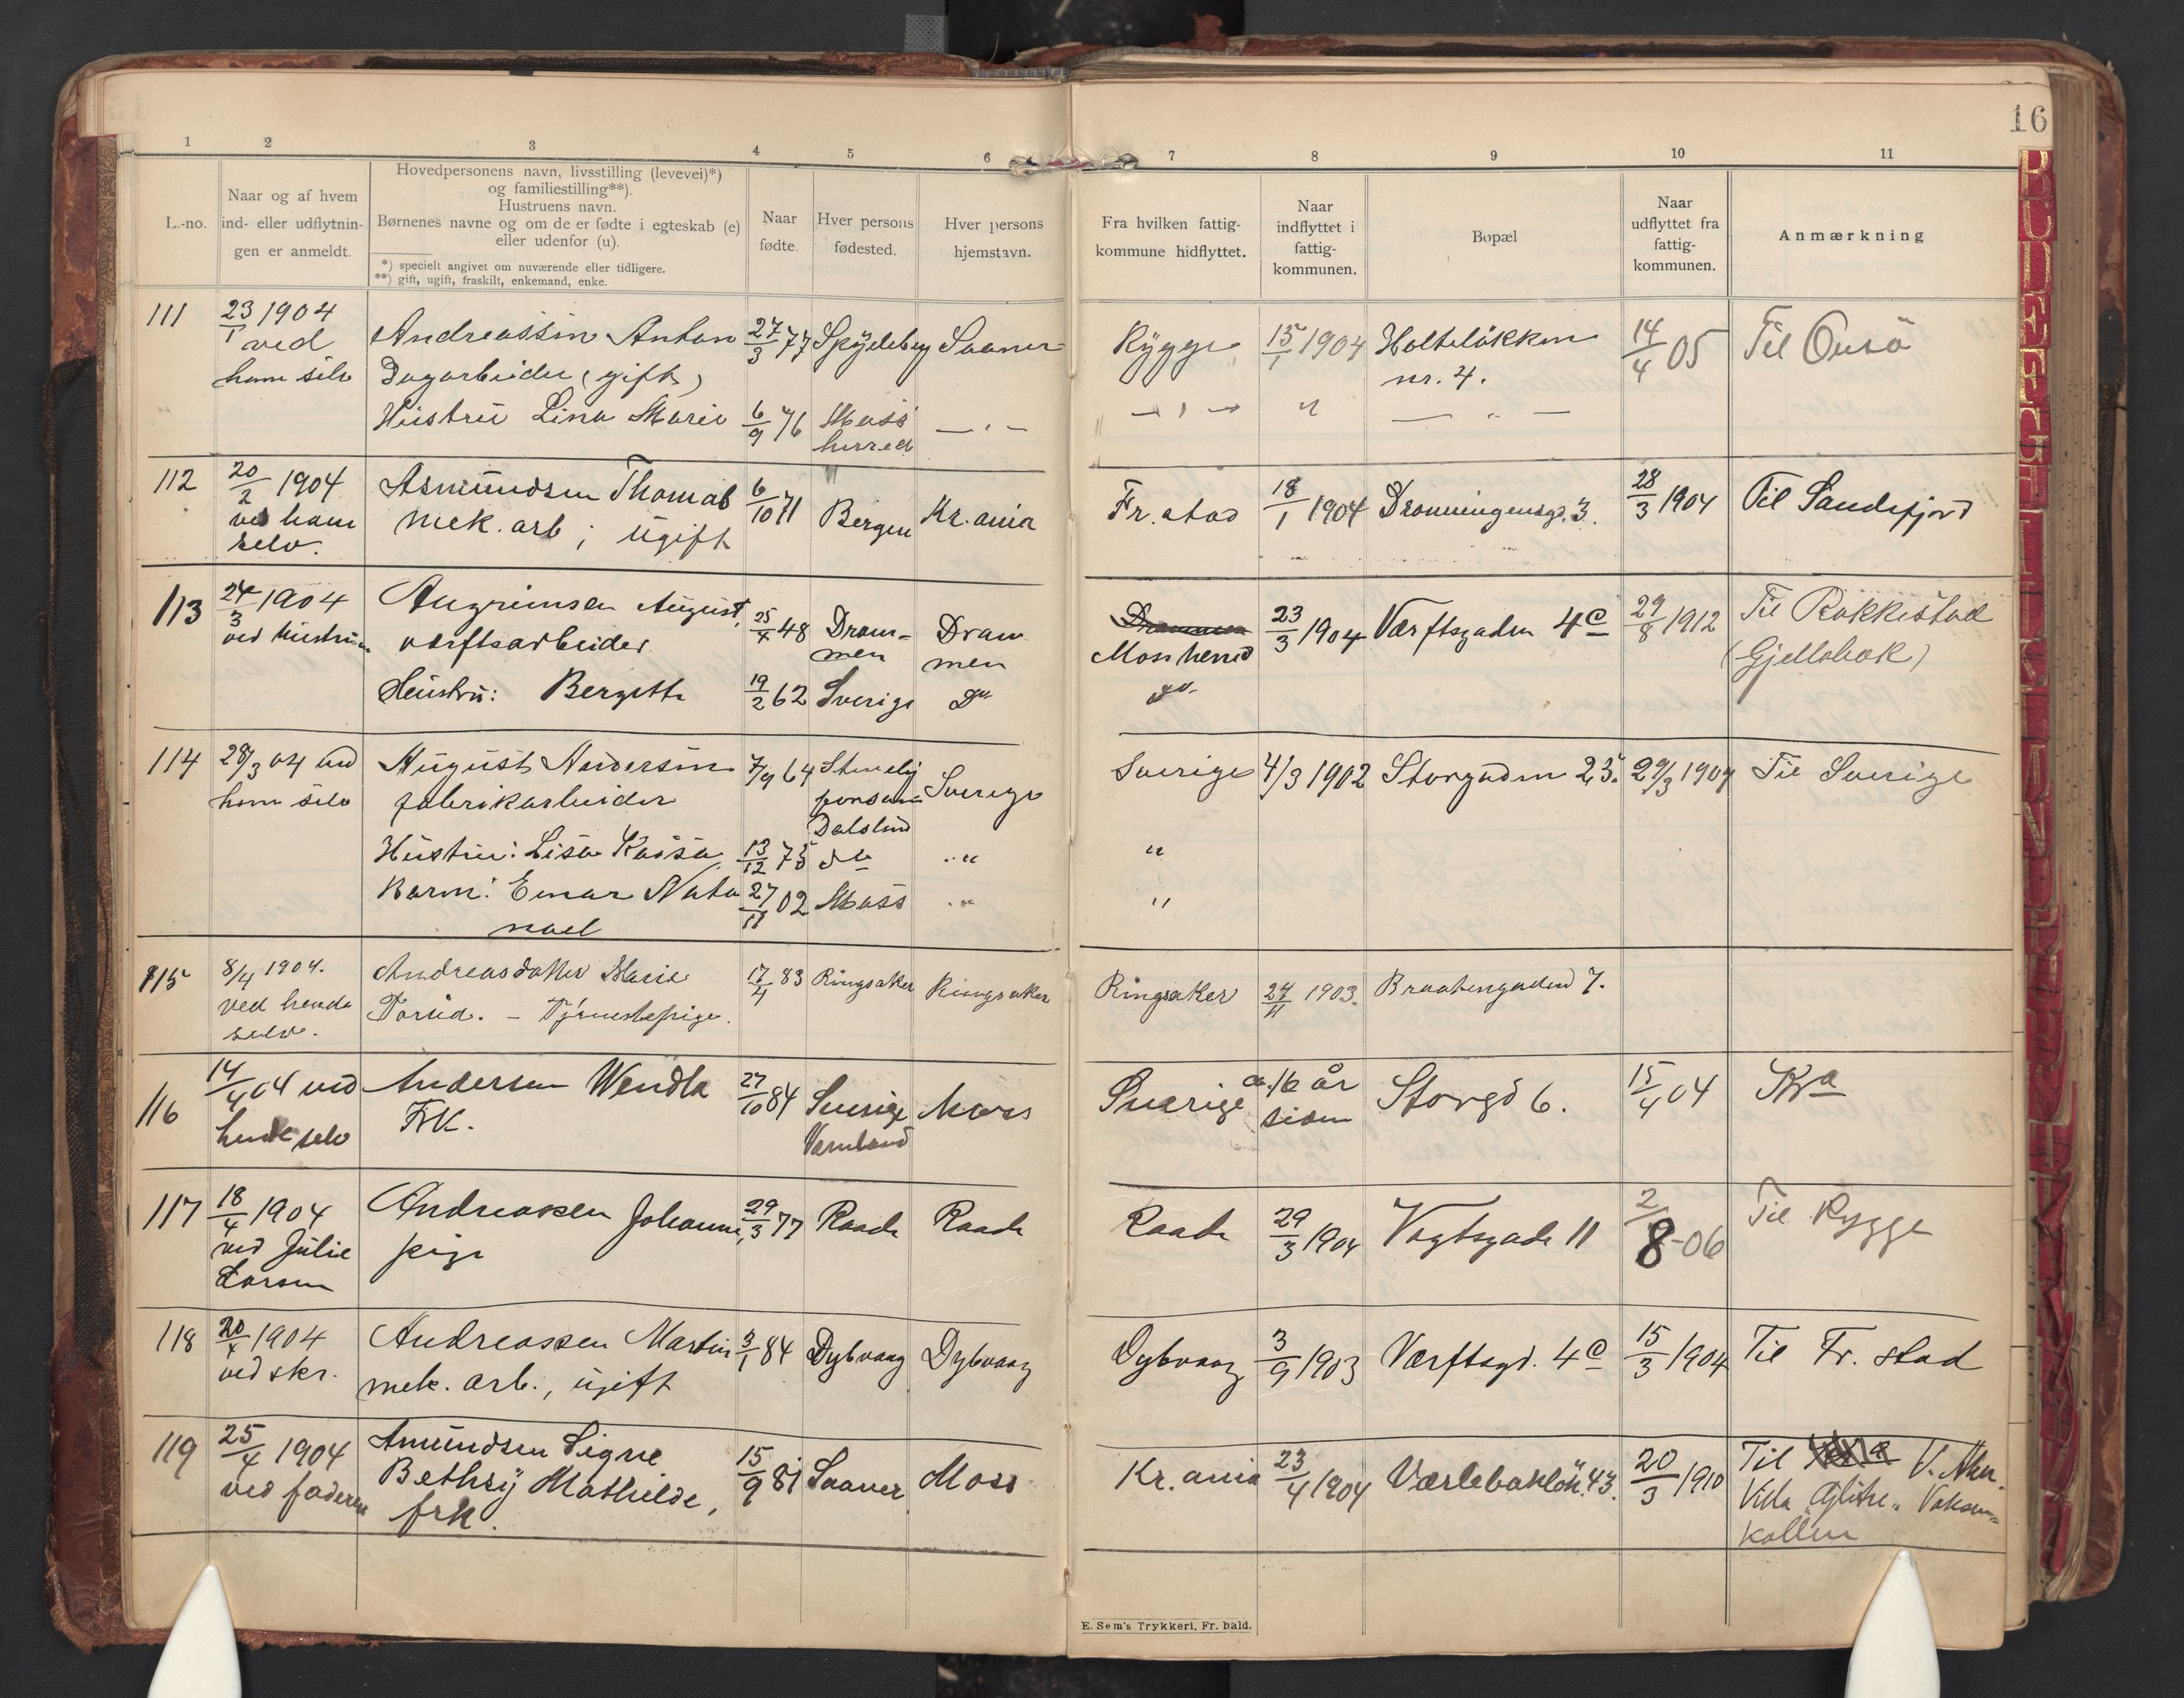 16
1 2 3 4 5 6 7 8 9 10 11
L.-no.
Naar og af hvem
ind- eller udflytnin-
gen er anmeldt.
Hovedpersonens navn, livsstilling (levevei)*)
og familiestilling**).
Hustruens navn.
Børnenes navne og om de er fødte i egteskab (e)
eller udenfor (u).
*) specielt angivet om nuværende eller tidligere.
**) gift, ugift, fraskilt, enkemand, enke.
Naar
fødte.
Hver persons
fødested.
Hver persons
hjemstavn.
Fra hvilken fattig-
kommune hidflyttet.
Naar
indflyttet i
fattig-
kommunen.
Bopæl
Naar
udflyttet fra
fattig-
kommunen.
Anmærkning
111 23/1 1904 Andreassen Anton 27/3 77 Spydeberg Saaner Rygge 15/1 1904 Holteløkken 14/4 05 Til Onsø
ved
ham selv Dagarbeider (gift) nr. 4.
Hustru Lina Marie 6/9 76 Moss — " — — " — " — " —
herred
112 20/2 1904 Asmundsen Thomas 6/10 71 Bergen Kr.ania Fr.stad 18/1 1904 Dronningensgd. 3. 28/3 1904 Til Sandefjord
ved ham mek. arb; ugift
selv.
113 24/3 1904 Angrimsen August, 25/4 48 Dram- Dram Drammen 23/3 1904 Værftsgaden 4c 29/8 1912 Til Rakkestad
ved hustruen værftsarbeider men men Moss herred (Gjellebæk)
Hustru: Bergitte 19/2 62 Sverige Do do
114 28/3 04 ved August Andersen 7/9 64 Sverige Sverige 4/3 1902 Storgaden 25. 29/3 1907 Til Sverige
ham selv fabrikarbeider
Dalsland
Hustru: Lisa Kaisa 13/12 75 do " "
Barn: Einar Nata 27/11 02 Moss " "
nael
115 8/4 1904. Andreasdatter Marie 17/4 83 Ringsaker Ringsaker Ringsaker 24/11 1903. Braatengaden 7.
ved hende Torud. – Tjenestepige.
selv.
116 14/4 04 ved Andersen Wendla 27/10 84 Sverige Moss Sverige ca. 16 år Storgd 6. 15/4 04 Kra
hende selv Frk. Vermland siden
117 18/4 1904 Andreassen Johanne, 29/3 77 Raade Raade Raade 29/3 1904 Vogtsgade 11 2/8-06 Til Rygge
ved Julie pige
Larsen
118 20/4 1904 Andreassen Martin 3/1 84 Dybvaag Dybvaag Dybvaag 3/9 1903 Værftsgd. 4c 15/3 1904 Til Fr. stad
ved skr. mek. arb., ugift
119 25/4 1904 Amundsen Signe 15/9 81 Saaner Moss Kr. ania 23/4 1904 Værlebakløk. 43. 20/3 1910 Til V. Aker.
ved faderen Bethsy Mathilde, Villa "Glitre" Voksen-
frk. kollen
E. Sem's Trykkeri, Fr. hald.